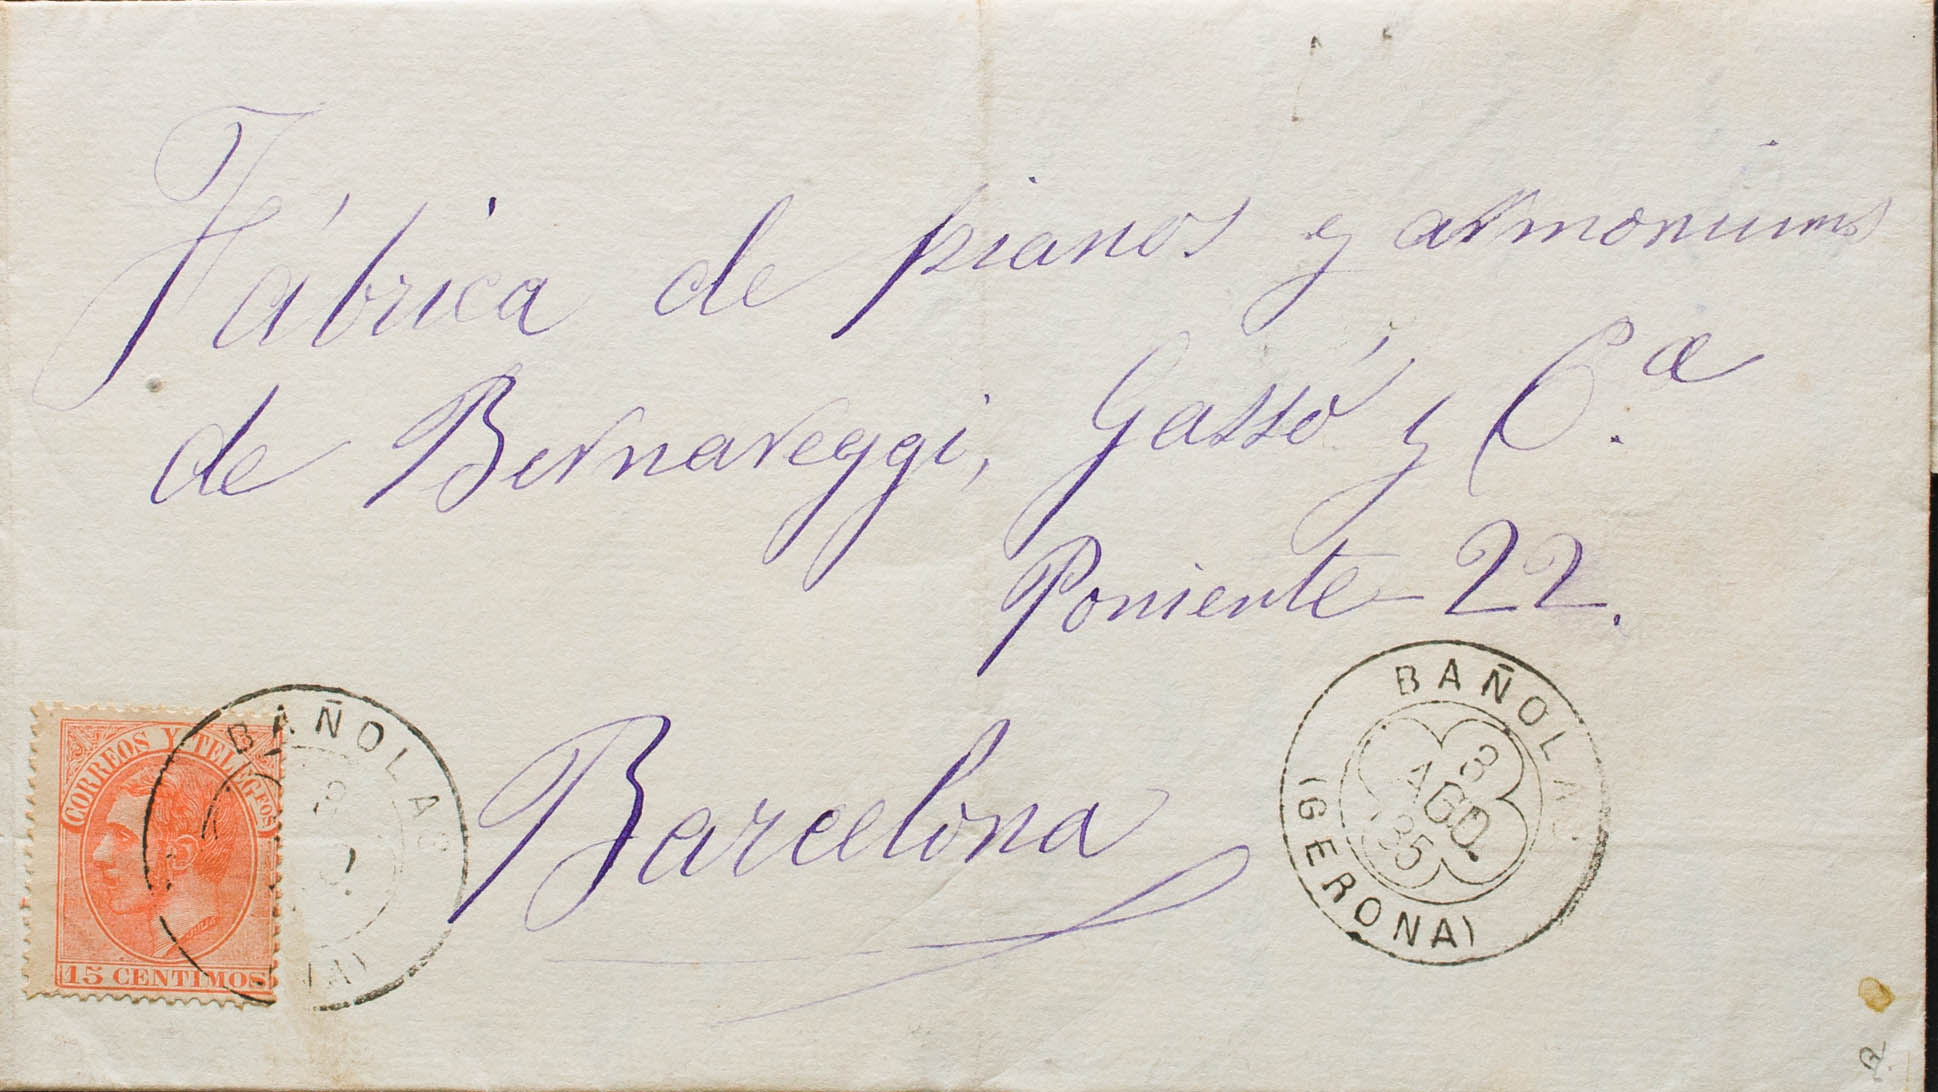 Fábrica de pianos y armoniums
de Bernareggi, Gassó y C.ª
Poniente - 22.
Barcelona
CORREOS Y TELEGFOS
15 CENTIMOS
BAÑOLAS
BAÑOLAS
3
AGO.
85
(GERONA)